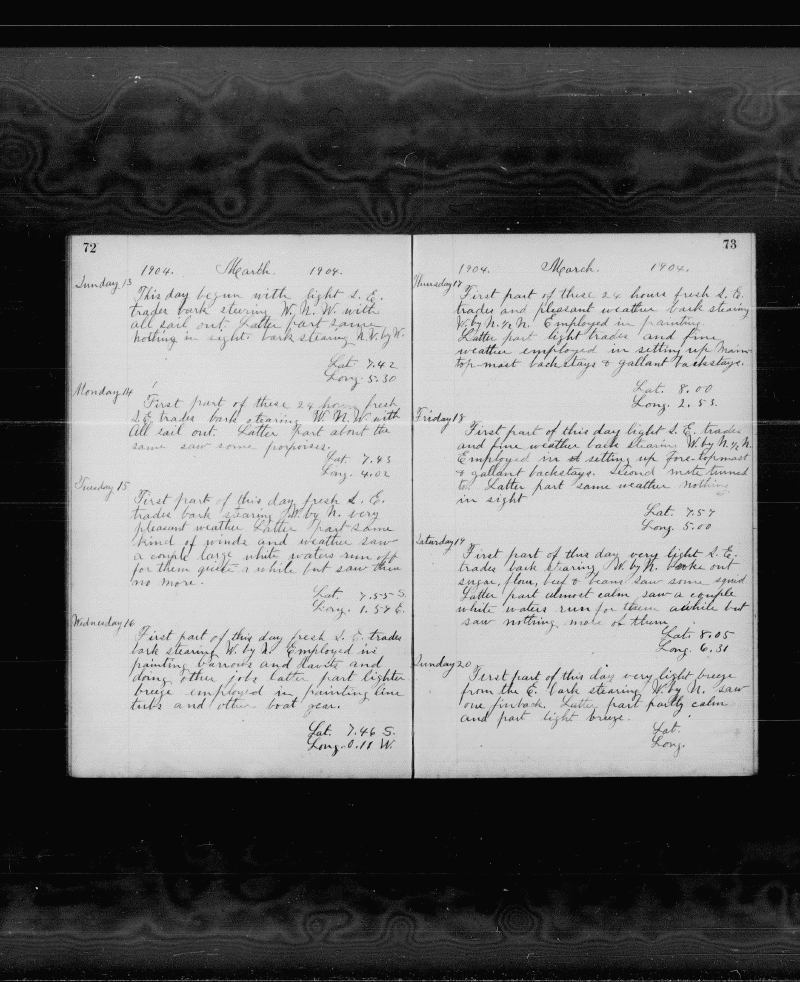 72
1904. March 1904.
Sunday 13
This day begun with light S. E.
trades bark stering W. N. W. with
all sail out. Latter part same
nothing in sight. bark stearing N.W. by W.
Lat 7.42
Long 5.30
Monday 14
First part of these 24 hours fresh
S.E. trades bark stearing W. N. W. with
all sail out. Latter part about the
same saw some porpoises.
Lat 7.43
Long. 4.02
Tuesday 15
First part of this day fresh S. E.
trades bark stearing W. by N. very
pleasant weather Latter part same
kind of winds and weather saw
a couple large white waters run off
for them quite a while but saw them
no more.
Lat. 7.55 S.
Long. 1.57 E.
Wednesday 16
First part of this day fresh S. E. trades
bark stearing W. by N. Employed in
painting barrows and davits and
doing other jobs latter part lighter
breeze employed in painting line
tubs and other boat gear.
Lat. 7.46 S.
Long. 0.11 W.
73
1904. March. 1904.
Thursday 17
First part of these 24 hours fresh S. E.
trades and pleasant weather bark stearing
W. by N. ½ N. Employed in painting.
Latter part light trades and fine
weather employed in setting up main-
top-mast backstays & gallant backstays.
Lat. 8.00
Long. 2.53.
Friday 18
First part of this day light S. E. trades
and fine weather bark stearing W. by N. ½ N.
Employed in setting up fore-topmast
& gallant backstays. Second mate turned
to. Latter part same weather nothing
in sight
Lat. 7.57
Long. 5.00
Saturday 19
First part of this day very light S. E.
trades bark stearing W. by N. broke out
sugar, flour, beef & beans saw some squid
Latter part almost calm saw a couple
white waters run for them awhile but
saw nothing more of them
Lat. 8.05
Long. 6.31
Sunday 20
First part of this day very light breeze
from the E. bark stearing W. by N. saw
one finback. Latter part partly calm
and part light breeze.
Lat.
Long.